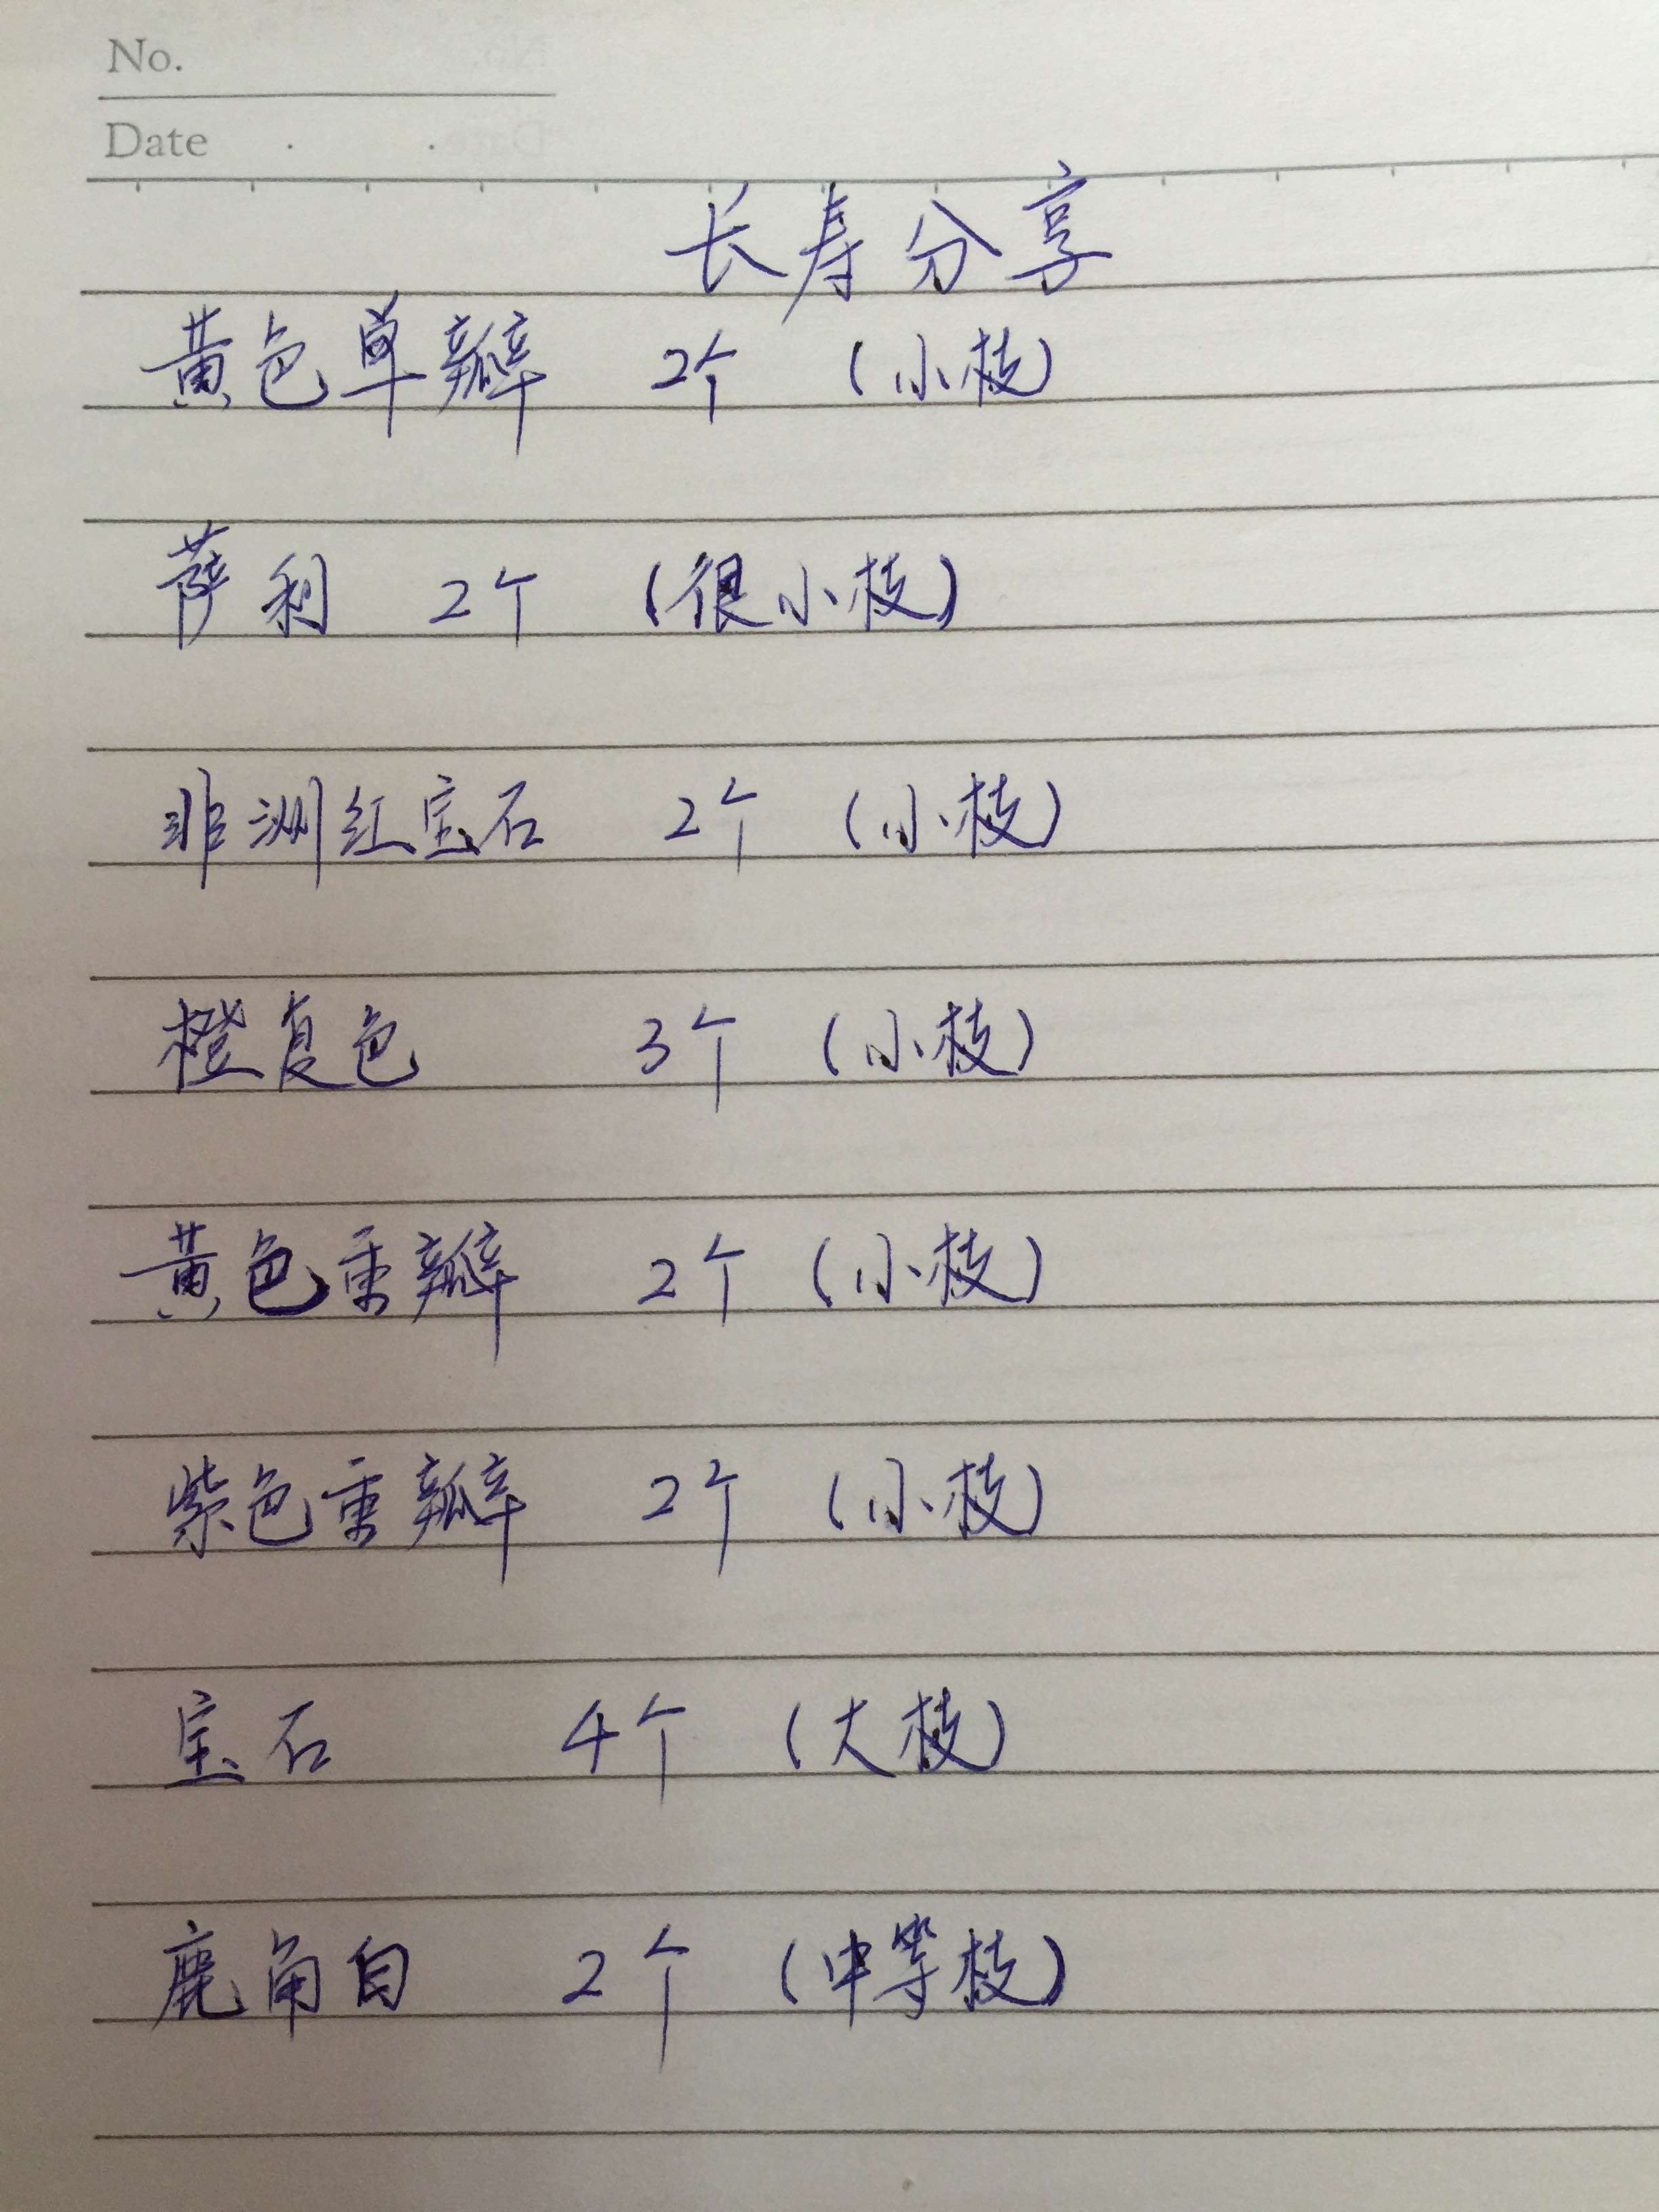 No.
Date . .
长寿分享
黄色单瓣 2个 (小枝)
萨利 2个 (很小枝)
非洲红宝石 2个 (小枝)
橙复色 3个 (小枝)
黄色重瓣 2个 (小枝)
紫色重瓣 2个 (小枝)
宝石 4个 (大枝)
鹿角白 2个 (中等枝)